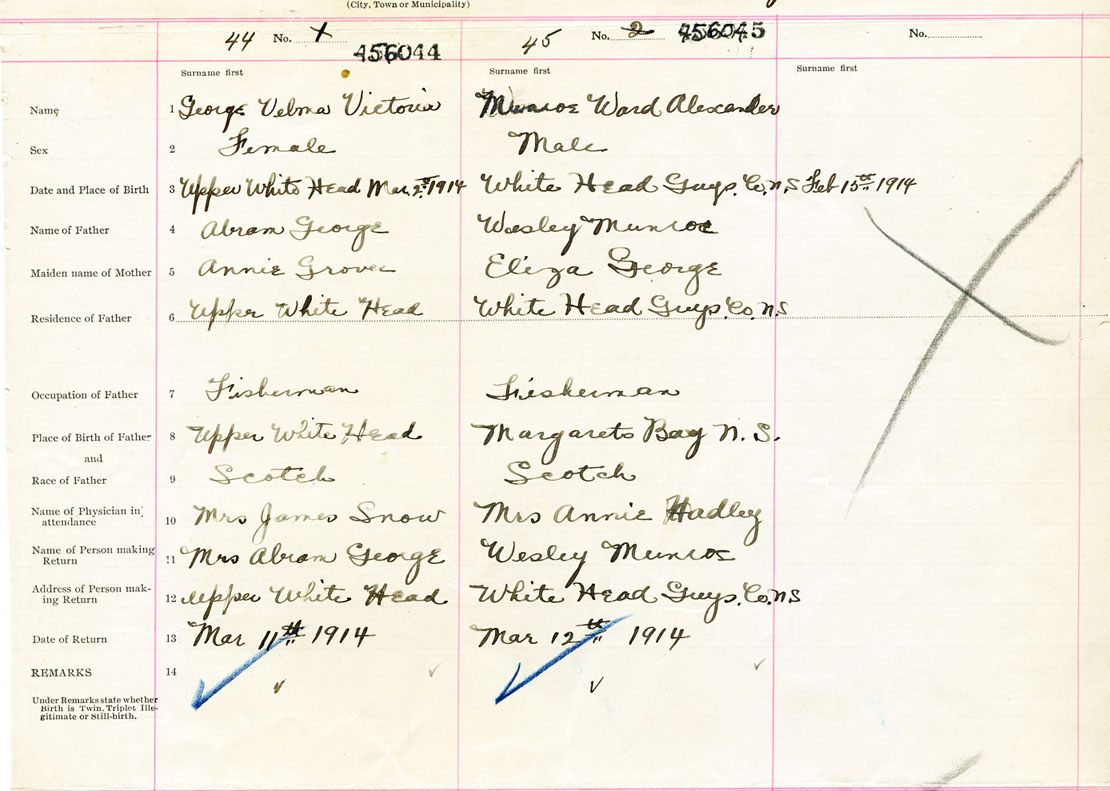 (City, Town or Municipality)
44 No. 1 456044 45 No. 2 456045 No.
Surname first Surname first Surname first
Name 1 George Velma Victoria Munroe Ward Alexander
Sex 2 Female Male
Date and Place of Birth 3 Upper White Head Mar. 2nd 1914 White Head Guys. Co. N.S Feb 15th 1914
Name of Father 4 Abram George Wesley Munroe
Maiden name of Mother 5 Annie Grover Eliza George
Residence of Father 6 Upper White Head White Head Guys. Co. N.S
Occupation of Father 7 Fisherman Fisherman
Place of Birth of Father 8 Upper White Head Margarets Bay N. S.
and
Race of Father 9 Scotch Scotch
Name of Physician in attendance 10 Mrs James Snow Mrs Annie Hadley
Name of Person making Return 11 Mrs Abram George Wesley Munroe
Address of Person making Return 12 Upper White Head White Head Guys. Co. N.S
Date of Return 13 Mar 11th 1914 Mar 12th 1914
REMARKS 14
Under Remarks state whether
Birth is Twin, Triplet Ille-
gitimate or Still-birth.